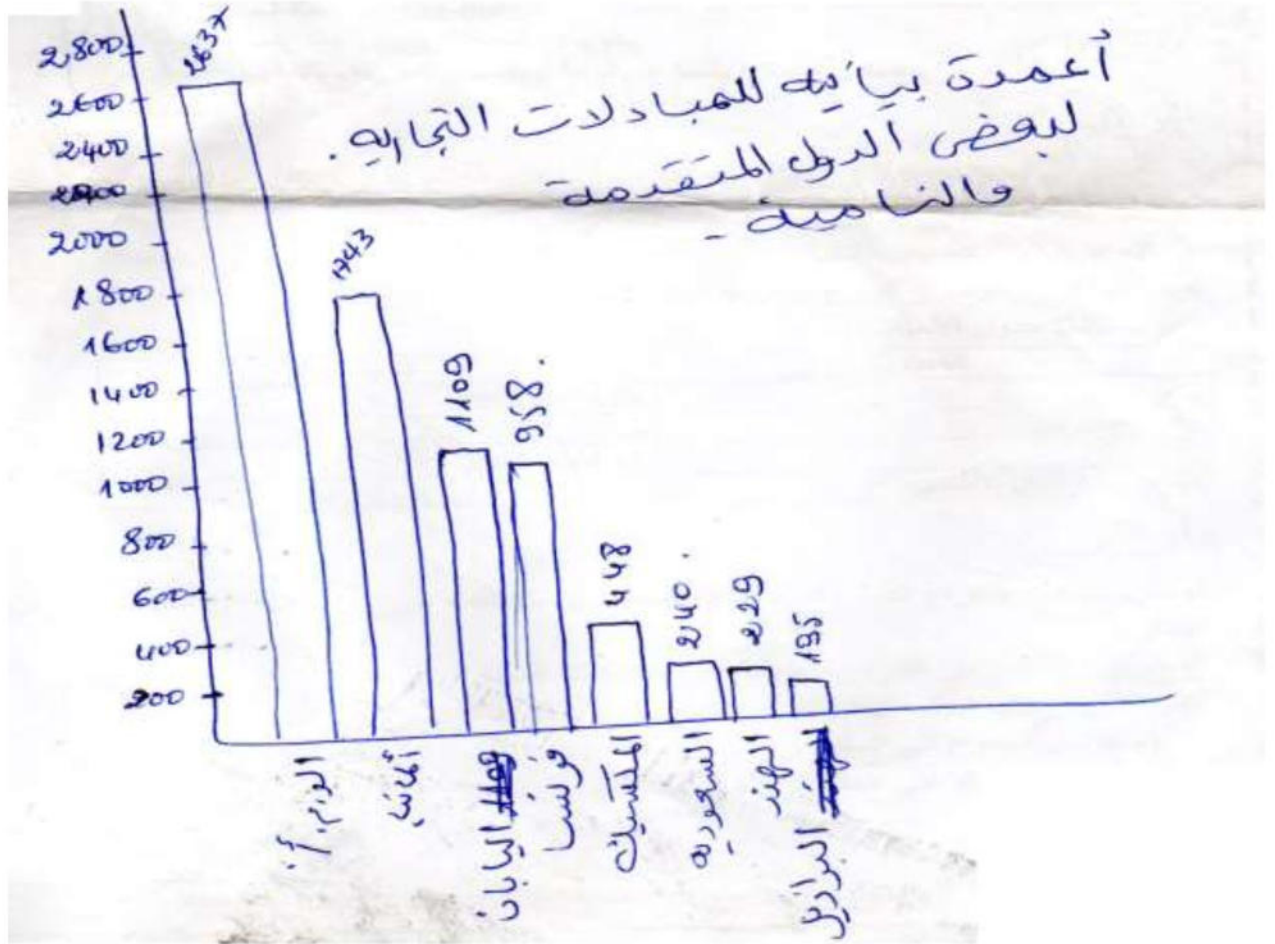 أعمدة بيانيه للمبادلات التجاريه.
لبعض الدول المتقدمة
والنامية -
2800
2600
2400
2000
1800
1600
1400
1200
1000
800
600
400
200
2637
1743
1109
958.
448
240.
229
195
الو.م.أ.
ألمانيا
اليابان
فرنسا
المكسيك
السعوديه
الهند
البرازيل